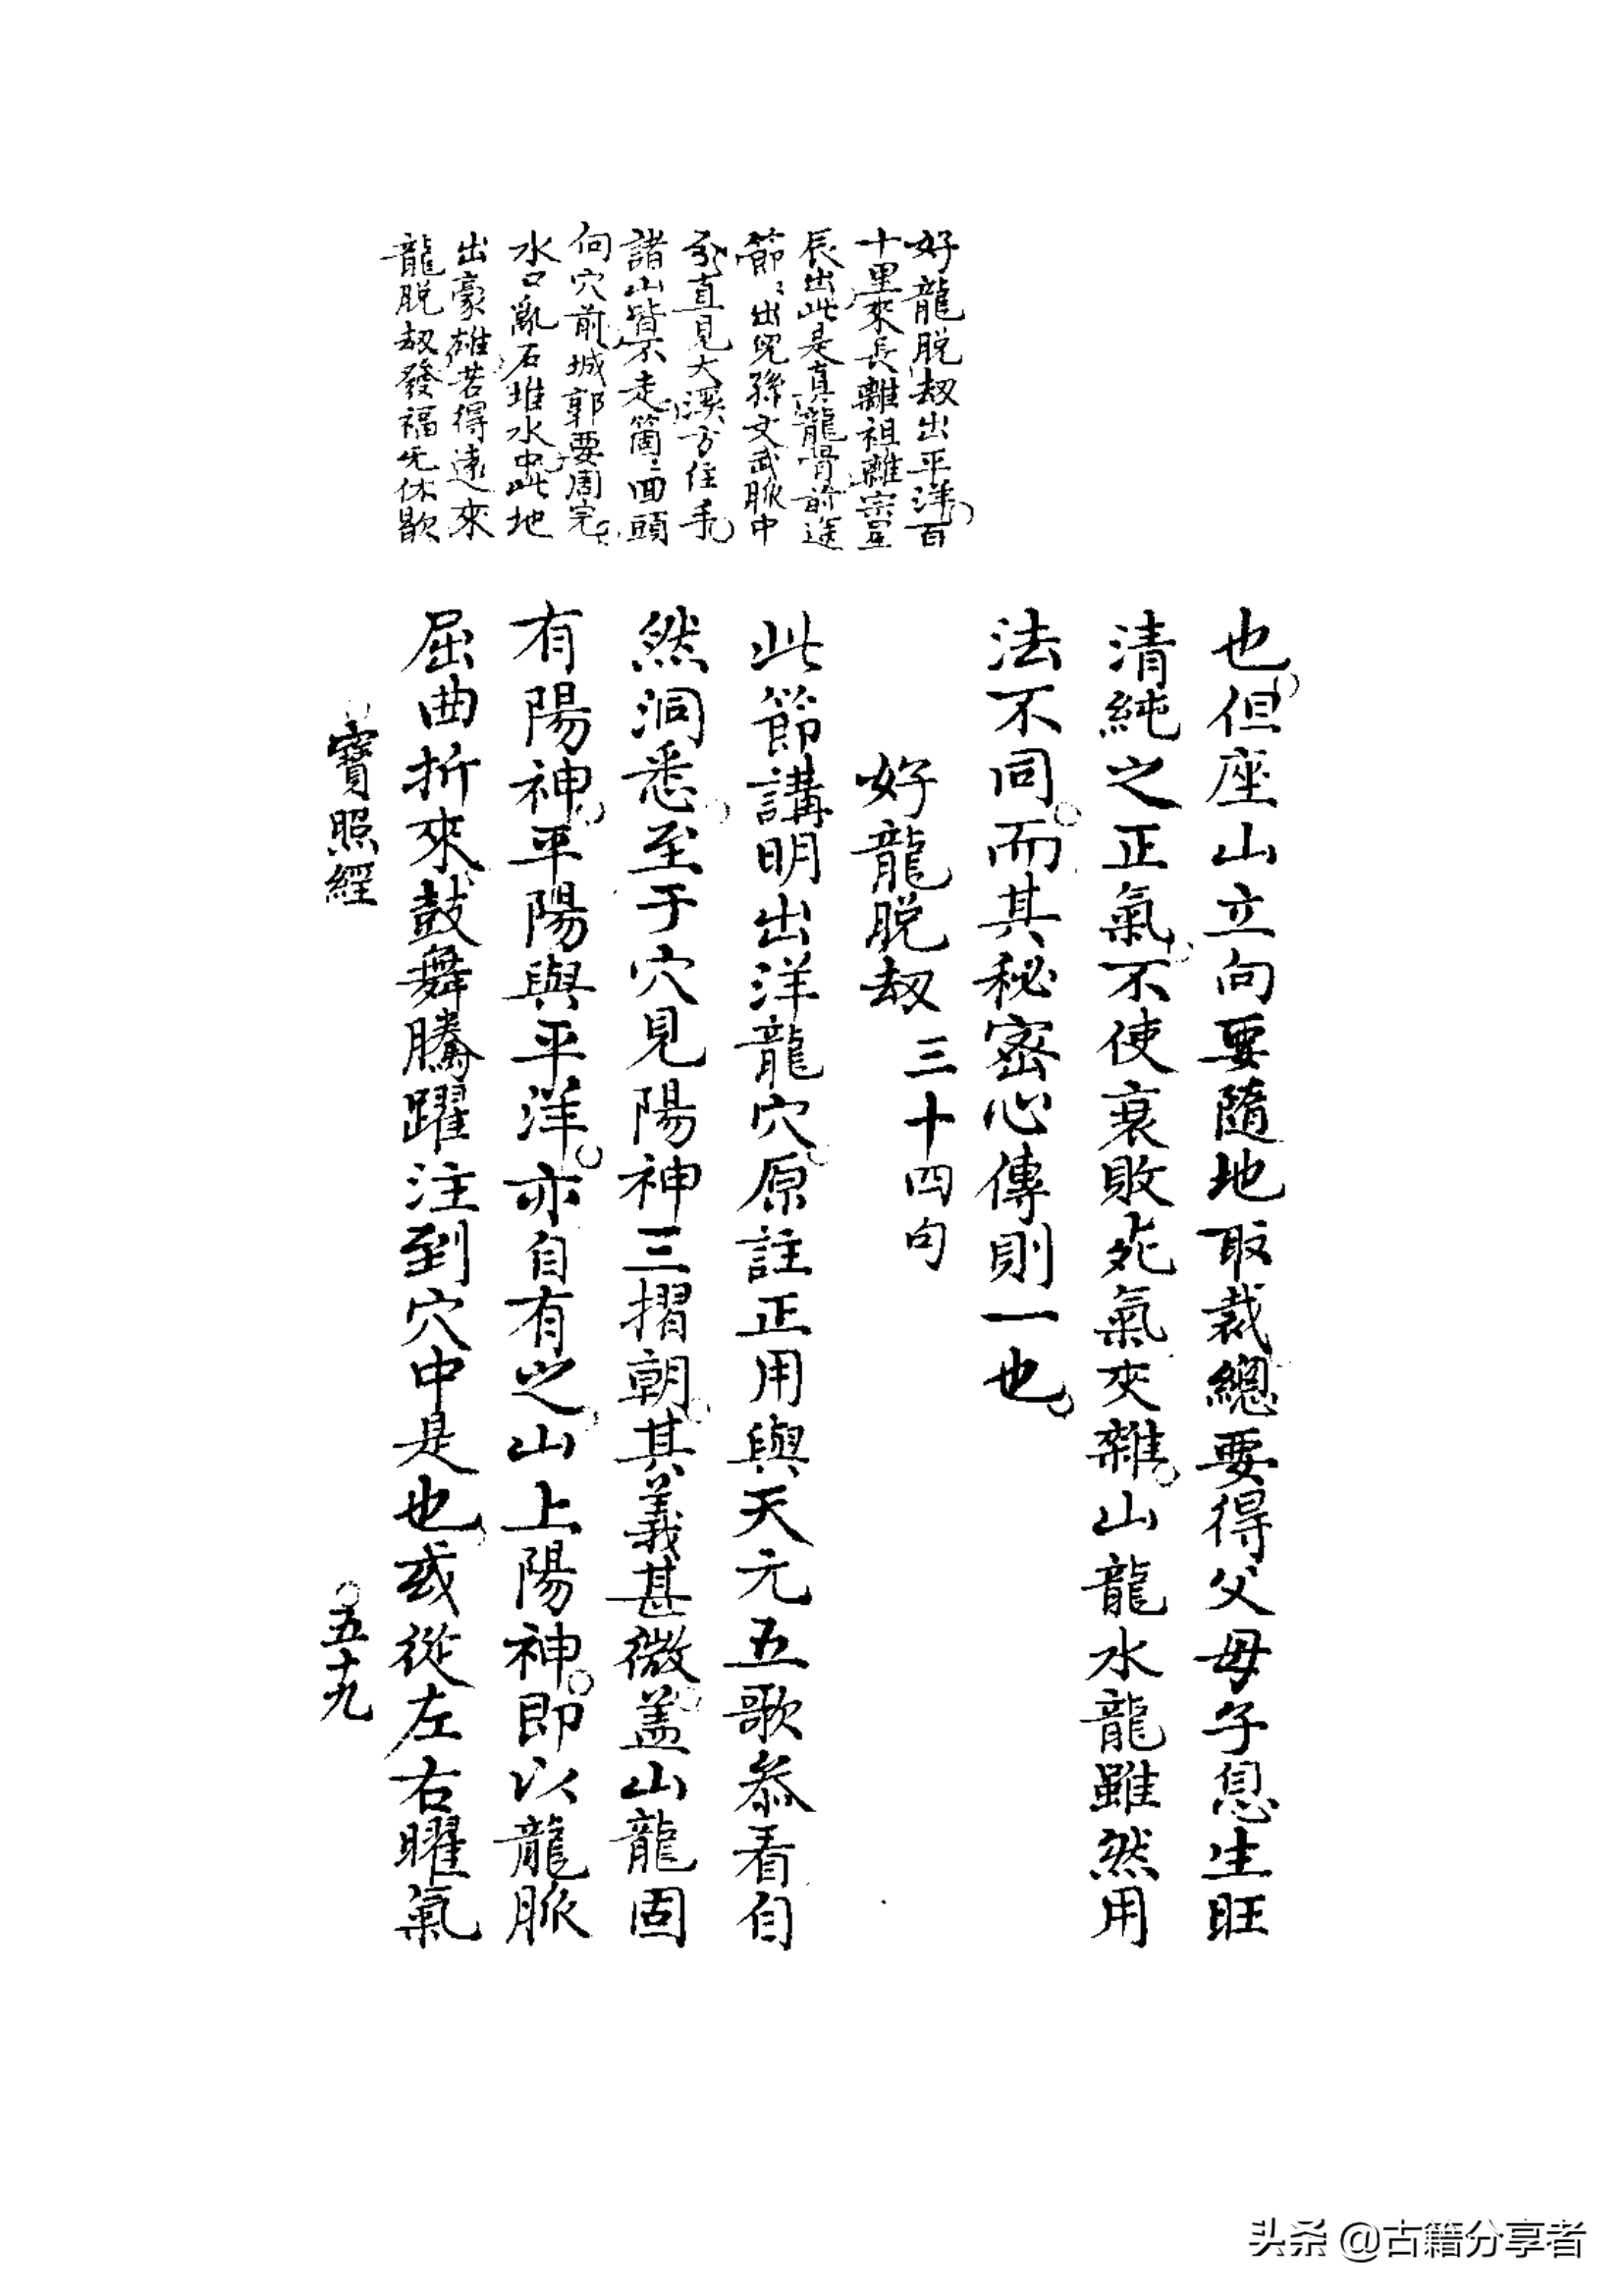 好龍脱刼出平洋百
十里來長離祖離宗星
辰出此是真龍骨前途
節〻出兒孫文武脈中
分直見大溪方住手
諸山皆不走箇〻回頭
向穴前城郭要周完
水口亂石堆水中此地
出豪雄若得遠來
龍脱刼發福无休歇
也但座山立向要隨地取裁總要得父母子息生旺
清純之正氣不使衰敗死氣夾雜山龍水龍雖然用
法不同而其秘密心傳則一也
好龍脱刼三十四句
此節講明出洋龍穴原註正用與天元五歌叅看自
然洞悉至于穴見陽神三摺朝其義甚微盖山龍固
有陽神平陽與平洋亦自有之山上陽神即以龍脈
屈曲折來鼓舞騰躍注到穴中是也或從左右曜氣
寶照經
五十九
头条 @古籍分享者